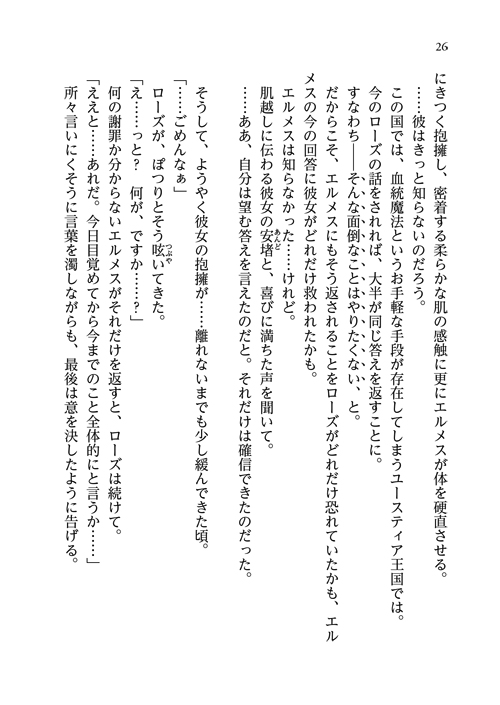 26
にきつく抱擁し、密着する柔らかな肌の感触に更にエルメスが体を硬直させる。
……彼はきっと知らないのだろう。
この国では、血統魔法というお手軽な手段が存在してしまうユースティア王国では。
今のローズの話をされれば、大半が同じ答えを返すことに。
すなわち――そんな面倒なことはやりたくない、と。
だからこそ、エルメスにもそう返されることをローズがどれだけ恐れていたかも、エル
メスの今の回答に彼女がどれだけ救われたかも。
エルメスは知らなかった……けれど。
肌越しに伝わる彼女の安堵と、喜びに満ちた声を聞いて。
あんど
……ああ、自分は望む答えを言えたのだと。それだけは確信できたのだった。
そうして、ようやく彼女の抱擁が……離れないまでも少し緩んできた頃。
「……ごめんなぁ」
ローズが、ぽつりとそう呟いてきた。
つぶや
「え……っと？　何が、ですか……？」
何の謝罪か分からないエルメスがそれだけを返すと、ローズは続けて。
「ええと……あれだ。今日目覚めてから今までのこと全体的にと言うか……」
所々言いにくそうに言葉を濁しながらも、最後は意を決したように告げる。